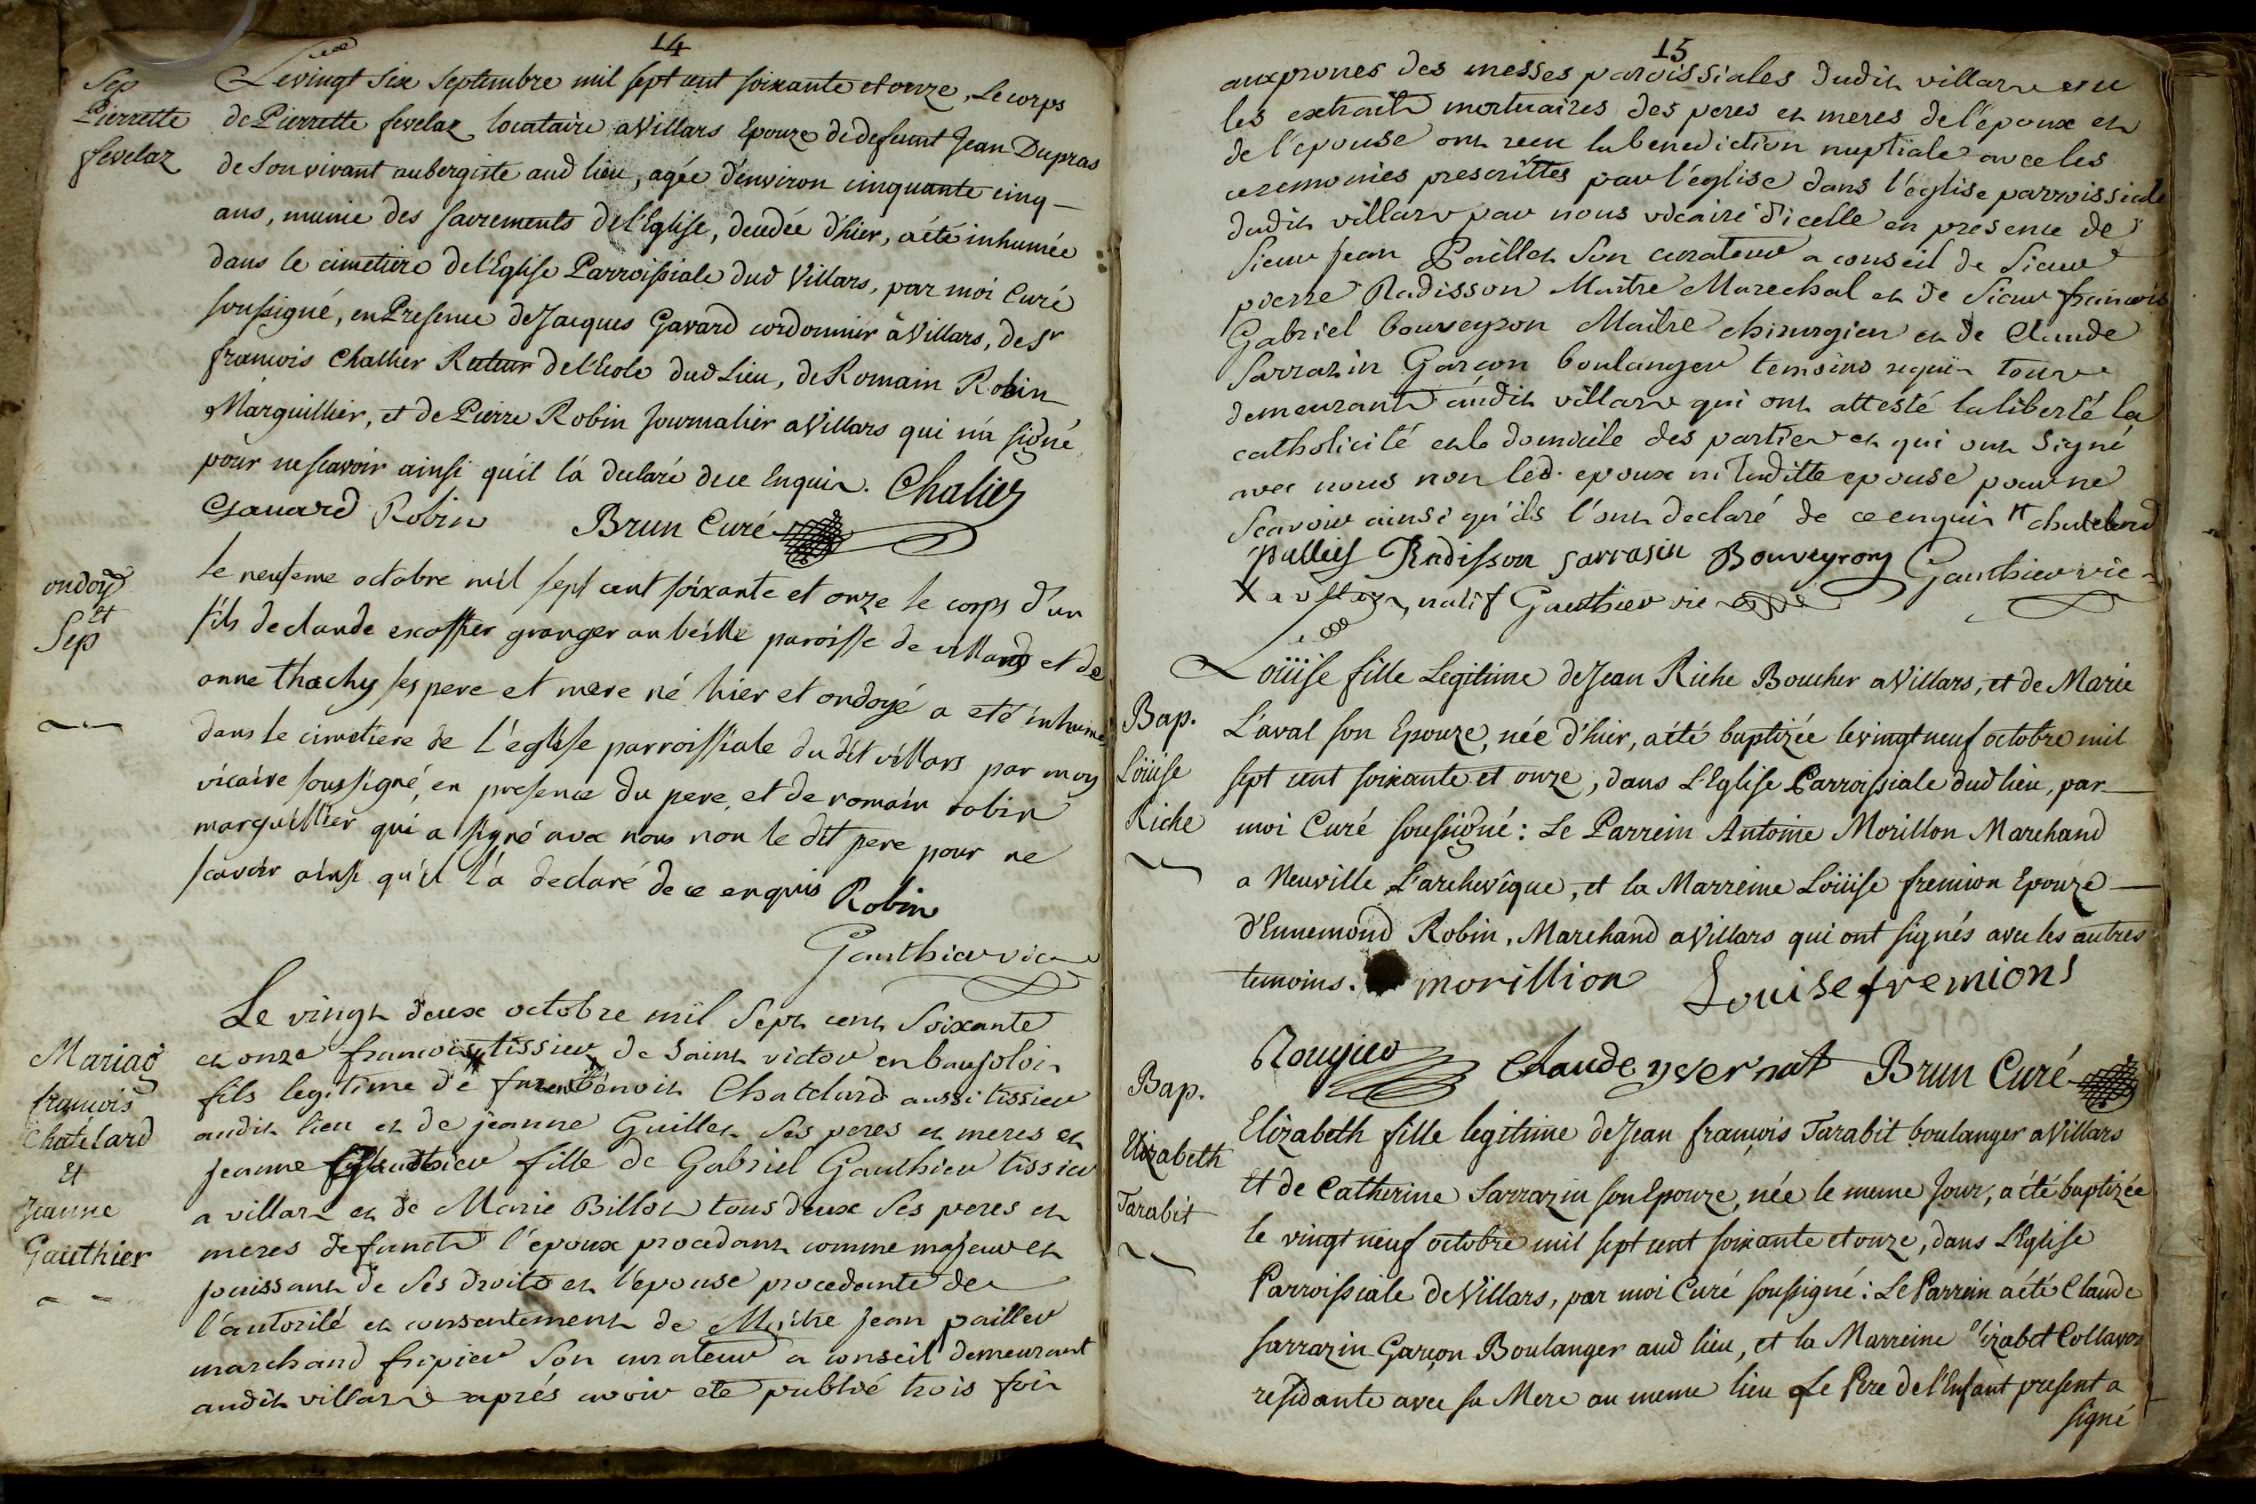 14
Sep
Pierrette
fevelaz
Le vingt six Septembre mil sept cent soixante et onze, Le corps
de Pierrette fevelaz locataire a Villars Epouze de defeunt Jean Dupras
de Son vivant aubergiste aud lieu, agée d'environ cinquante cinq
ans, munie des sacrements de l'Eglise, decedée d'hier, a été inhumée
dans le cimetiere de l'Eglise Parroissiale dud Villars, par moi Curé
soussigné, en Presence de Jacques Gavard cordonnier à Villars, de Sr
francois Challier Recteur de l'Ecole dud Lieu, de Romain Robin
Marguillier, et de Pierre Robin Journalier a Villars qui n'a signé
pour ne scavoir ainsi qu'il l'a declaré de ce Enquis. Chalier
Gavard Robin Brun Curé
ondoyé
et
Sep
le neufieme octobre mil sept cent soixante et onze le corps d'un
fils de claude escoffier granger au beille paroisse de villars et de
anne thachy ses pere et mere né hier et ondoyé a eté inhumé
dans le cimetiere de l'eglise parroissiale du dit villars par moy
vicaire soussigné, en presence du pere, et de romain robin
marguillier qui a signé avec nous non le dit pere pour ne
scavoir ainsi qu'il l'a declaré de ce enquis Robin
Gauthier vic
Mariag
francois
Chatelard
et
Jeanne
Gauthier
Le vingt deux octobre mil Sept cent Soixante
et onze francois tissier de Saint victor en baujoloi
fils legitime de feu benoit Chatelard aussi tissier
audit lieu et de jeanne Guillet Ses peres et meres et
jeanne Gauthier fille de Gabriel Gauthier tissier
a villars et de Marie Billot tous deux Ses peres et
meres defunts l'epoux procedant comme majeur et
jouissant de Ses droits et l'epouse procedante de
l'autorité et consentement de Maitre jean paillet
marchand fripier Son curateur a conseil demeurant
audit villars aprés avoir eté publié trois foi
15
aux prones des messes paroissiales dudit villars et vu
les extraits mortuaires des peres et meres de l'epoux et
de l'epouse ont recu la benediction nuptiale avec les
ceremonies prescrittes par l'église dans l'eglise parroissiale
dudit villars par nous vicaire d'icelle en presence de
Sieur jean Paillet Son curateur a conseil de Sieur
pierre Radisson Maitre Marechal et de Sieur francois
Gabriel bouveyron Maitre chirurgien et de Claude
Sarrazin Garçon boulanger temoins requis tous
demeurants audit villars qui ont attesté la liberté la
catholicité et le domicile des parties et qui ont Signé
avec nous non led. epoux ni laditte epouse pour ne
Scavoir ainsi qu'ils l'ont declaré de ce enquis chatelard
palliet Radisson sarrasin Bouveyron Gauthier vic
natif Gauthier vic
Bap.
Loüise
Riche
Loüise fille Legitime de Jean Riche Boucher a Villars, et de Marie
L'aval son Epouze, née d'hier, a été baptizée le vingt neuf octobre mil
sept cent soixante et onze, dans L'Eglise Parroissiale dud lieu, par
moi Curé soussigné: Le Parrein Antoine Morillon Marchand
a Neuville L'archevêque, et la Marreine Loüise fremion Epouze
d'Ennemond Robin, Marchand a Villars qui ont signés avec les autres
temoins. morillion Louise fremions
Rougieu Claude yvernat Brun Curé
Bap.
Elizabeth
Tarabit
Elizabeth fille legitime de Jean francois Tarabit boulanger a Villars
Et de Catherine Sarrazin son Epouze, née le meme Jour, a été baptizée
le vingt neuf octobre mil sept cent soixante et onze, dans L'Eglise
Parroissiale de Villars, par moi Curé soussigné: Le Parrein a été Claude
sarrazin Garçon Boulanger aud lieu, et la Marreine Elizabet Collavon
residante avec sa Mere au meme lieu Le Pere de l'Enfant present a
signé